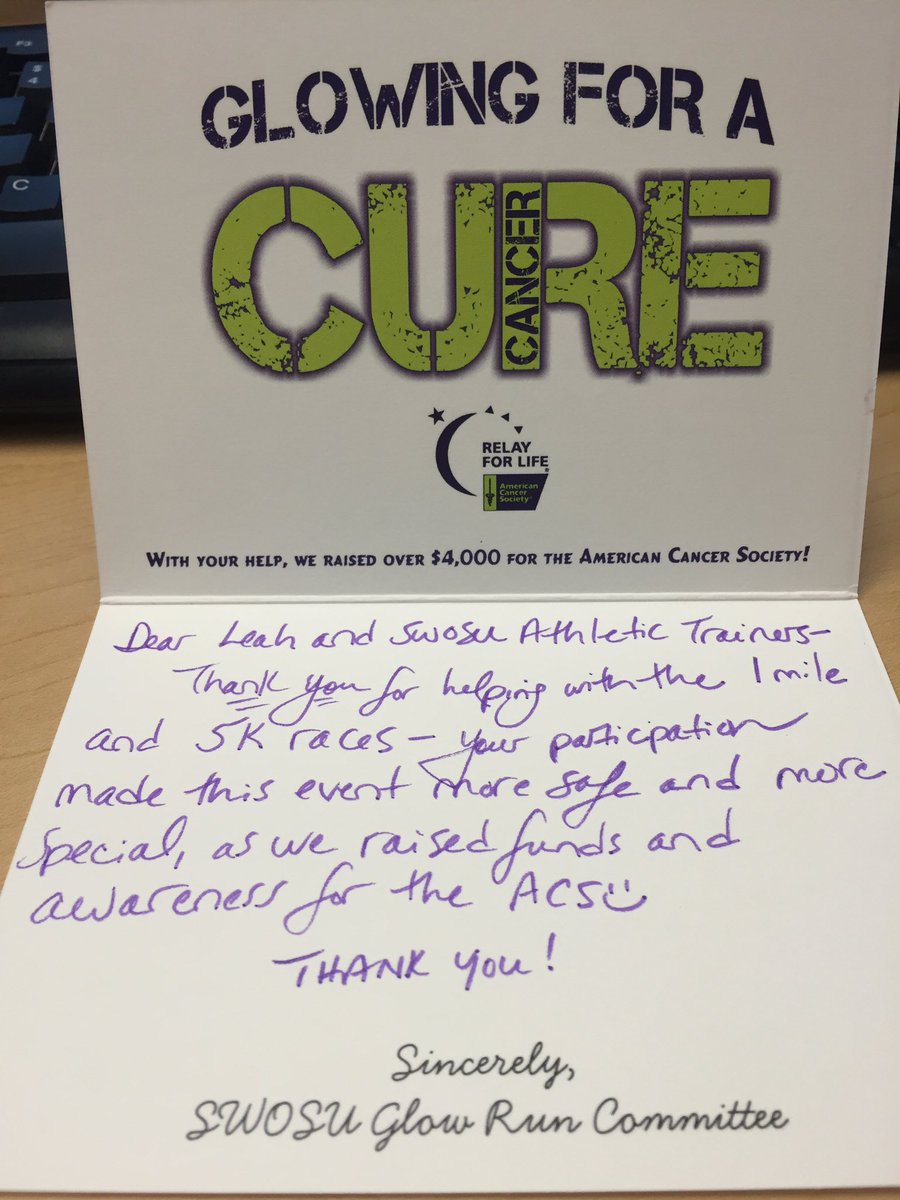 F5
$
4
C
GLOWING FOR A
CURE
CANCER
RELAY
FOR LIFE®
American
Cancer
Society®
WITH YOUR HELP, WE RAISED OVER $4,000 FOR THE AMERICAN CANCER SOCIETY!
Dear Leah and SWOSU Athletic Trainers-
Thank you for helping with the 1 mile
and 5K races – your particpation
made this event more safe and more
special, as we raised funds and
awareness for the ACS
THANK YOU!
Sincerely,
SWOSU Glow Run Committee